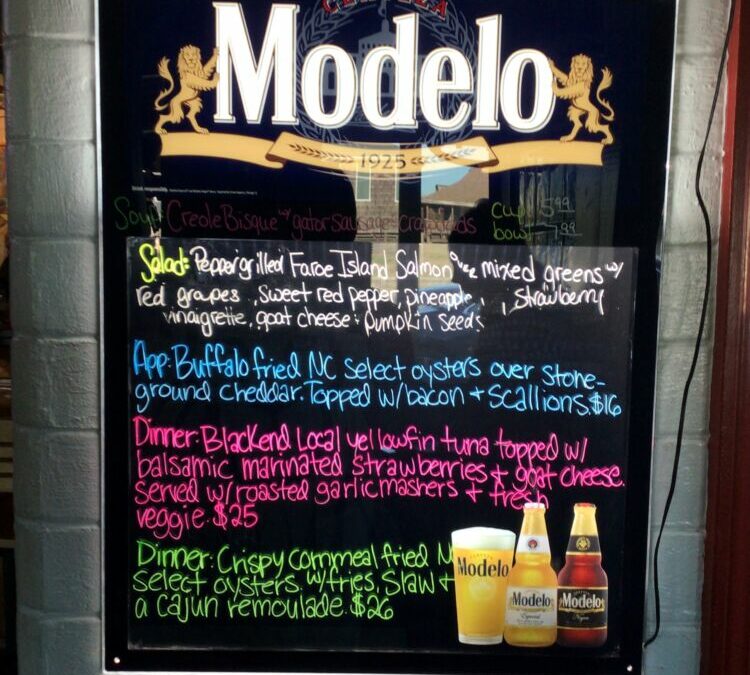 CERVEZA
Modelo
1925
Soup: Creole Bisque w/ gator sausage + crawfish
cup 5.99
bowl 7.99
Salad: Pepper grilled Faroe Island Salmon over mixed greens w/
red grapes, sweet red pepper, pineapple, , strawberry
vinaigrette, goat cheese + pumpkin seeds
App: Buffalo fried NC select oysters over stone-
ground cheddar. Topped w/bacon + scallions. $16
Dinner: Blackend Local yellowfin tuna topped w/
balsamic marinated strawberries + goat cheese.
Served w/roasted garlic mashers + fresh
veggie. $25
Dinner: Crispy cornmeal fried N
select oysters w/fries, slaw +
a cajun remoulade. $26
Modelo
Modelo
Especial
Modelo
Negra